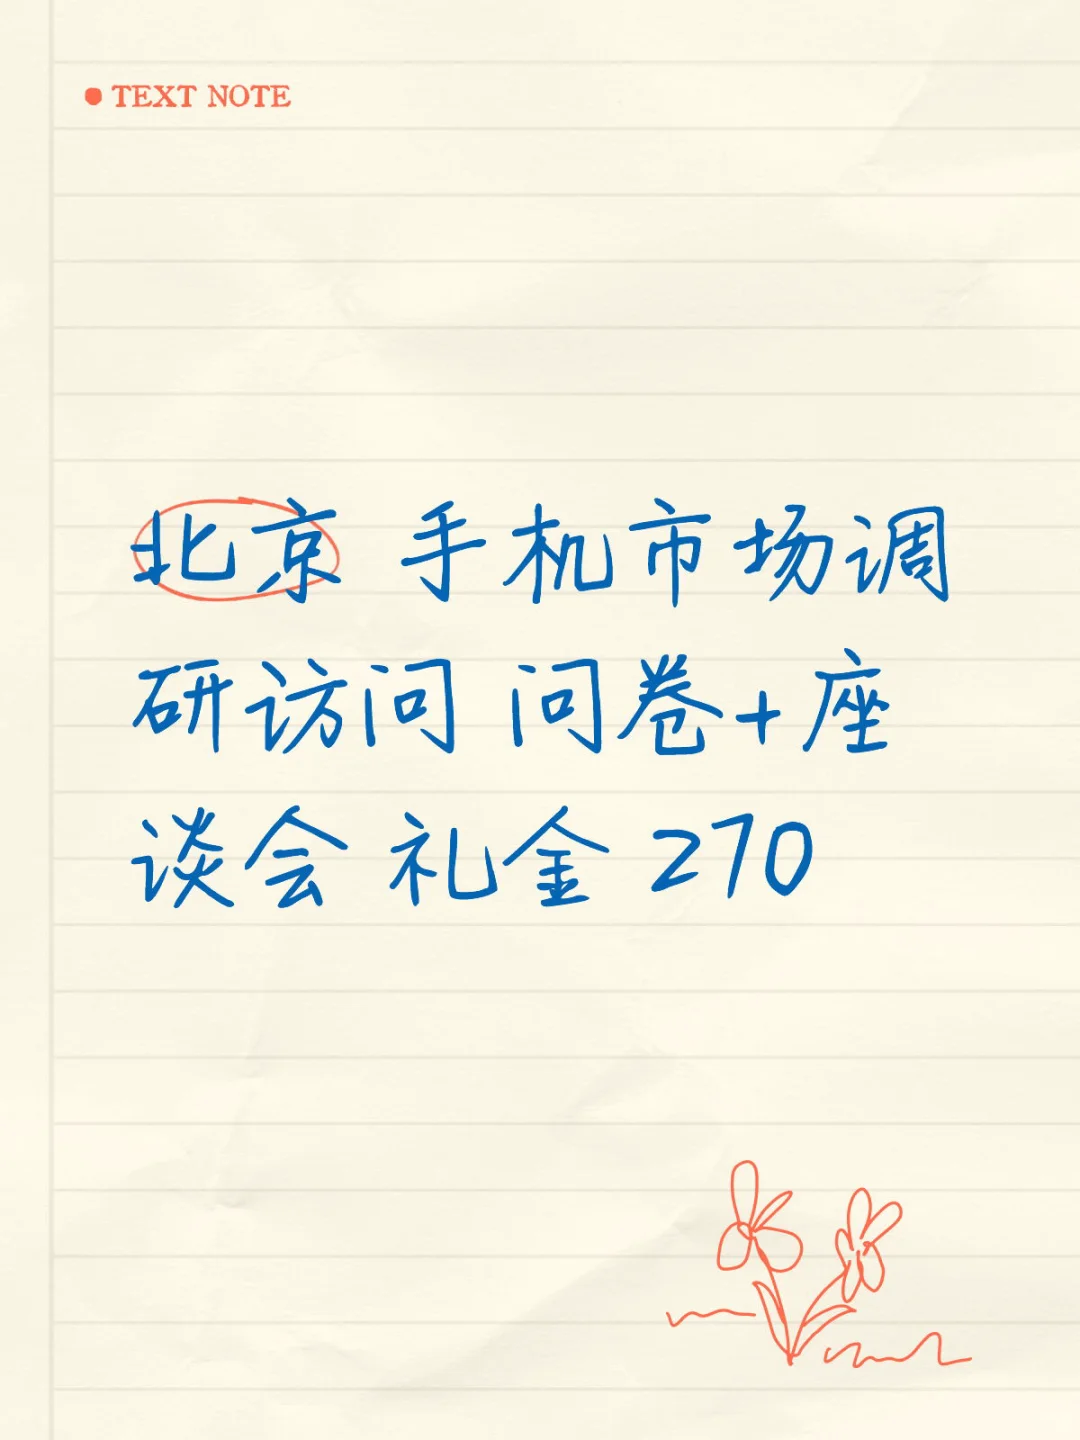 TEXT NOTE
北京 手机市场调
研访问 问卷+座
谈会 礼金 270